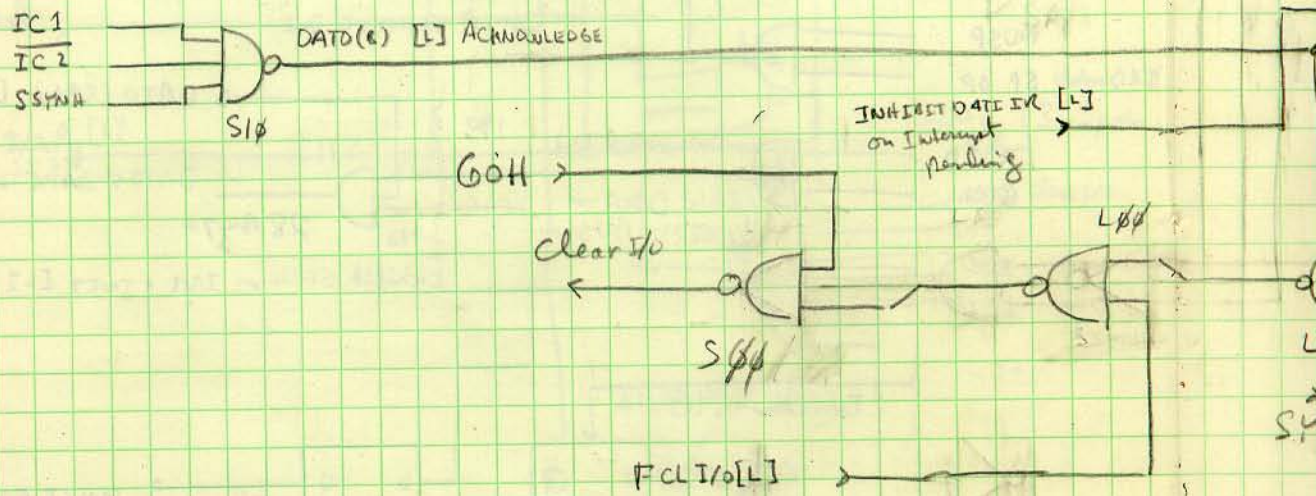 IC1
IC2
SSYNH
DATO(B) [L] ACKNOWLEDGE
S1ø
INHIBIT DATI IR [L]
on Interrupt
Pending
GOH
Clear I/O
Løø
Søø
FCL I/O[L]